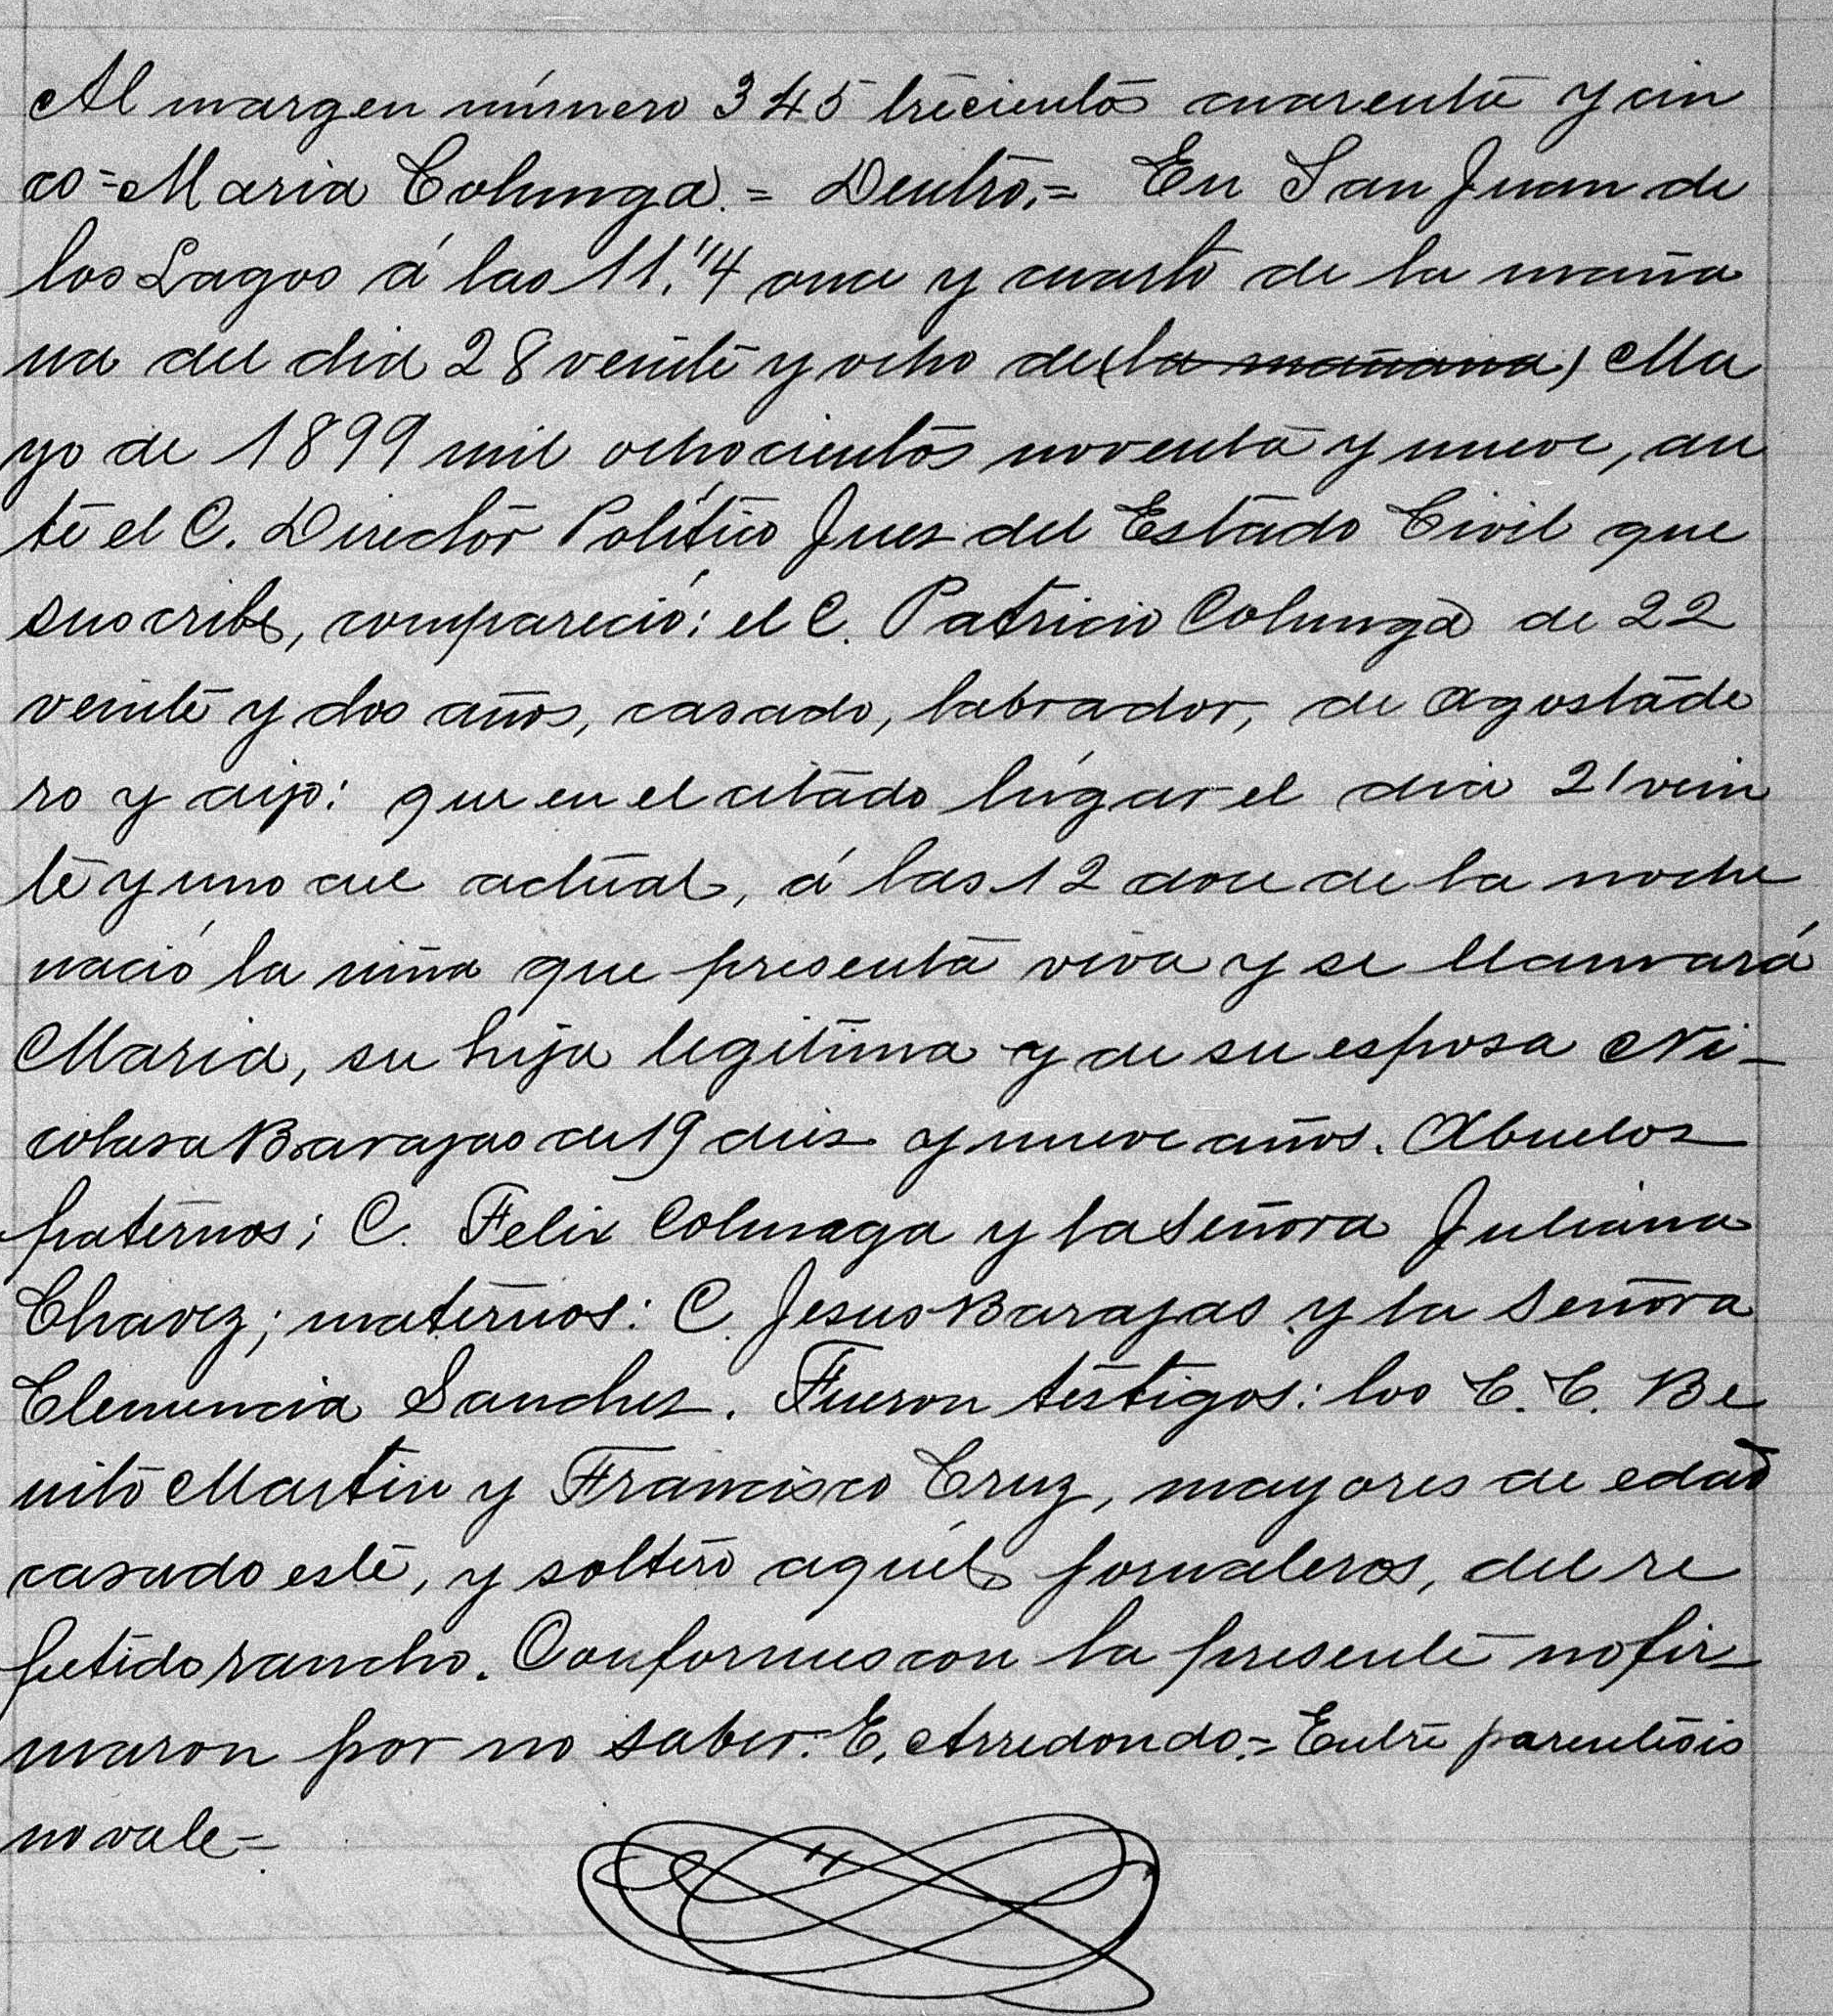 Al margen número 345 trecientos cuarenta y cin
co = Maria Colunga. = Dentro. = En San Juan de
los Lagos á las 11.1/4 once y cuarto de la maña
na del dia 28 veinte y ocho de (la mañana) Ma
yo de 1899 mil ochocientos noventa y nueve, an
te el C. Director Político Juez del Estado Civil que
suscribe, compareció: el C. Patricio Colunga de 22
veinte y dos años, casado, labrador, de Agostade
ro y dijo: que en el citado lúgar el dia 21 vein
te y uno del actual, á las 12 doce de la noche
nació la niña que presenta viva y se llamará
Maria, su hija legitima y de su esposa Ni-
colasa Barajas de 19 diez y nueve años. Abuelos
paternos; C. Felix Colunga y la Señora Juliana
Chavez; maternos: C. Jesus Barajas y la Señora
Clemencia Sanchez. Fueron testigos: los C. C. Be
nito Martin y Francisco Cruz, mayores de edad
casado este, y soltero aquél, jornaleros, del re
petido rancho. Conformes con la presente no fir
maron por no saber. E. Arredondo. = Entre parentesis
no vale =